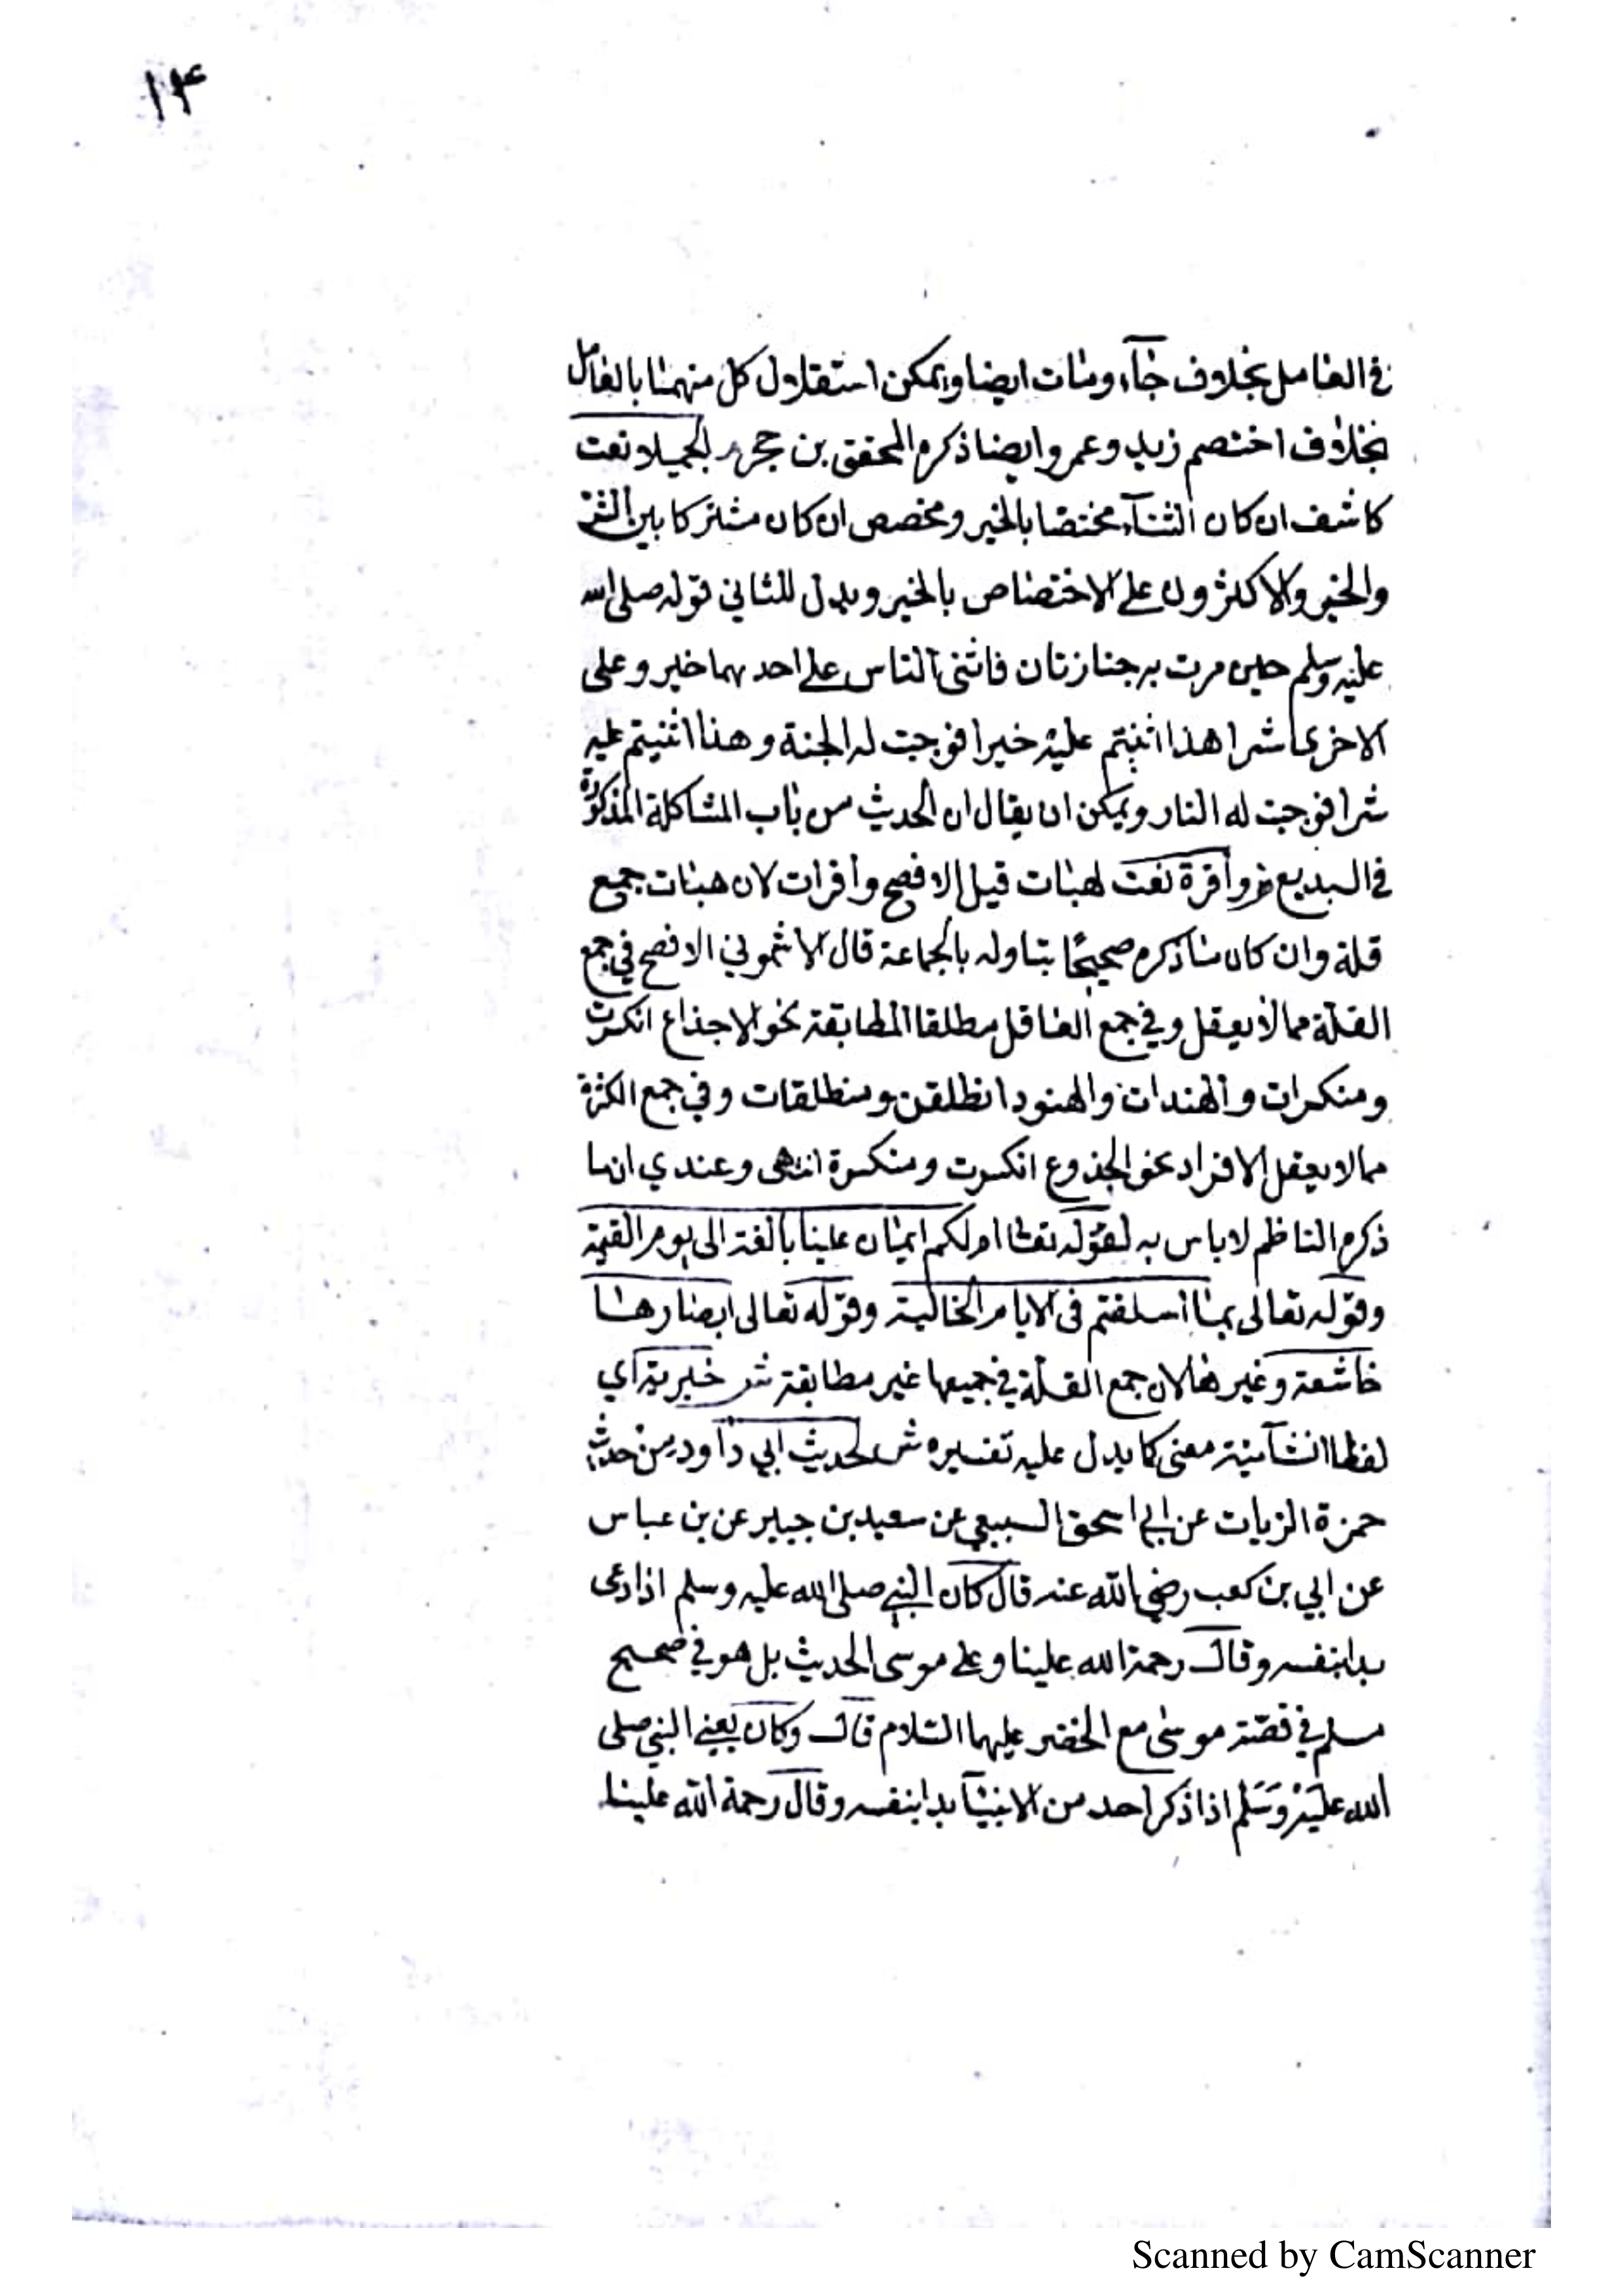 ١٤
في العامل بخلاف جآء ومات ايضا ويمكن استقلال كل منهما بالعامل
بخلاف اختصم زيد وعمرو ايضا ذكره المحقق بن حجر م الجميلا نعت
كاشف ان كان الثنآء مختصا بالخير ومخصص ان كان مشتركا بين الشر
والخير والاكثرون على الاختصاص بالخير ويدل للثاني قوله صلى الله
عليه وسلم حين مرت به جنازتان فاثنى الناس على احدهما خير وعلى
الاخرى شرا هذا اثنيتم عليه خيرا فوجبت له الجنة وهذا اثنيتم عليه
شرا فوجبت له النار ويمكن ان يقال ان الحديث من باب المشاكلة المذكورة
في البديع م وافرة نعت لهبات قيل الافصح وافرات لان هبات جمع
قلة وان كان ما ذكره صحيحًا بتاوله بالجماعة قال الاشموني الافصح في جمع
القلة مما لا يعقل وفي جمع العاقل مطلقا المطابقة نحو الاجذاع انكسرت
ومنكسرات والهندات والهنود انطلقن ومنطلقات وفي جمع الكثرة
مما لا يعقل الافراد نحو الجذوع انكسرت ومنكسرة انتهى وعندي ان ما
ذكره الناظم لا باس به لقوله تعالى ام لكم ايمان علينا بالغة الى يوم القيمة
وقوله تعالى بما اسلفتم فى الايام الخالية وقوله تعالى ابصارها
خاشعة وغيرها لان جمع القلة في جميعها غير مطابقة ش خبرية اي
لفظا انشآئية معنى كما يدل عليه تفسيره ش لحديث ابي داود من حديث
حمزة الزيات عن ابي اسحق السبيعي عن سعيد بن جبير عن بن عباس
عن ابي بن كعب رضي الله عنه قال كان النبي صلى الله عليه وسلم اذا دعى
بدا بنفسه وقال رحمة الله علينا وعلى موسى الحديث بل هو في صحيح
مسلم في قصة موسى مع الخضر عليهما السلام قال وكان يعني النبي صلى
الله عليه وسلم اذا ذكر احد من الانبيآ بدا بنفسه وقال رحمة الله علينا
Scanned by CamScanner